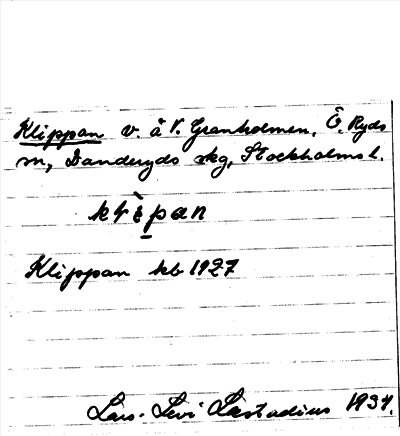 Klippan v. å V. Granholmen, Ö. Ryds
sn, Danderyds skg, Stockholms l.
Klippan kb 1927
Lars-Levi Læstadius 1937.